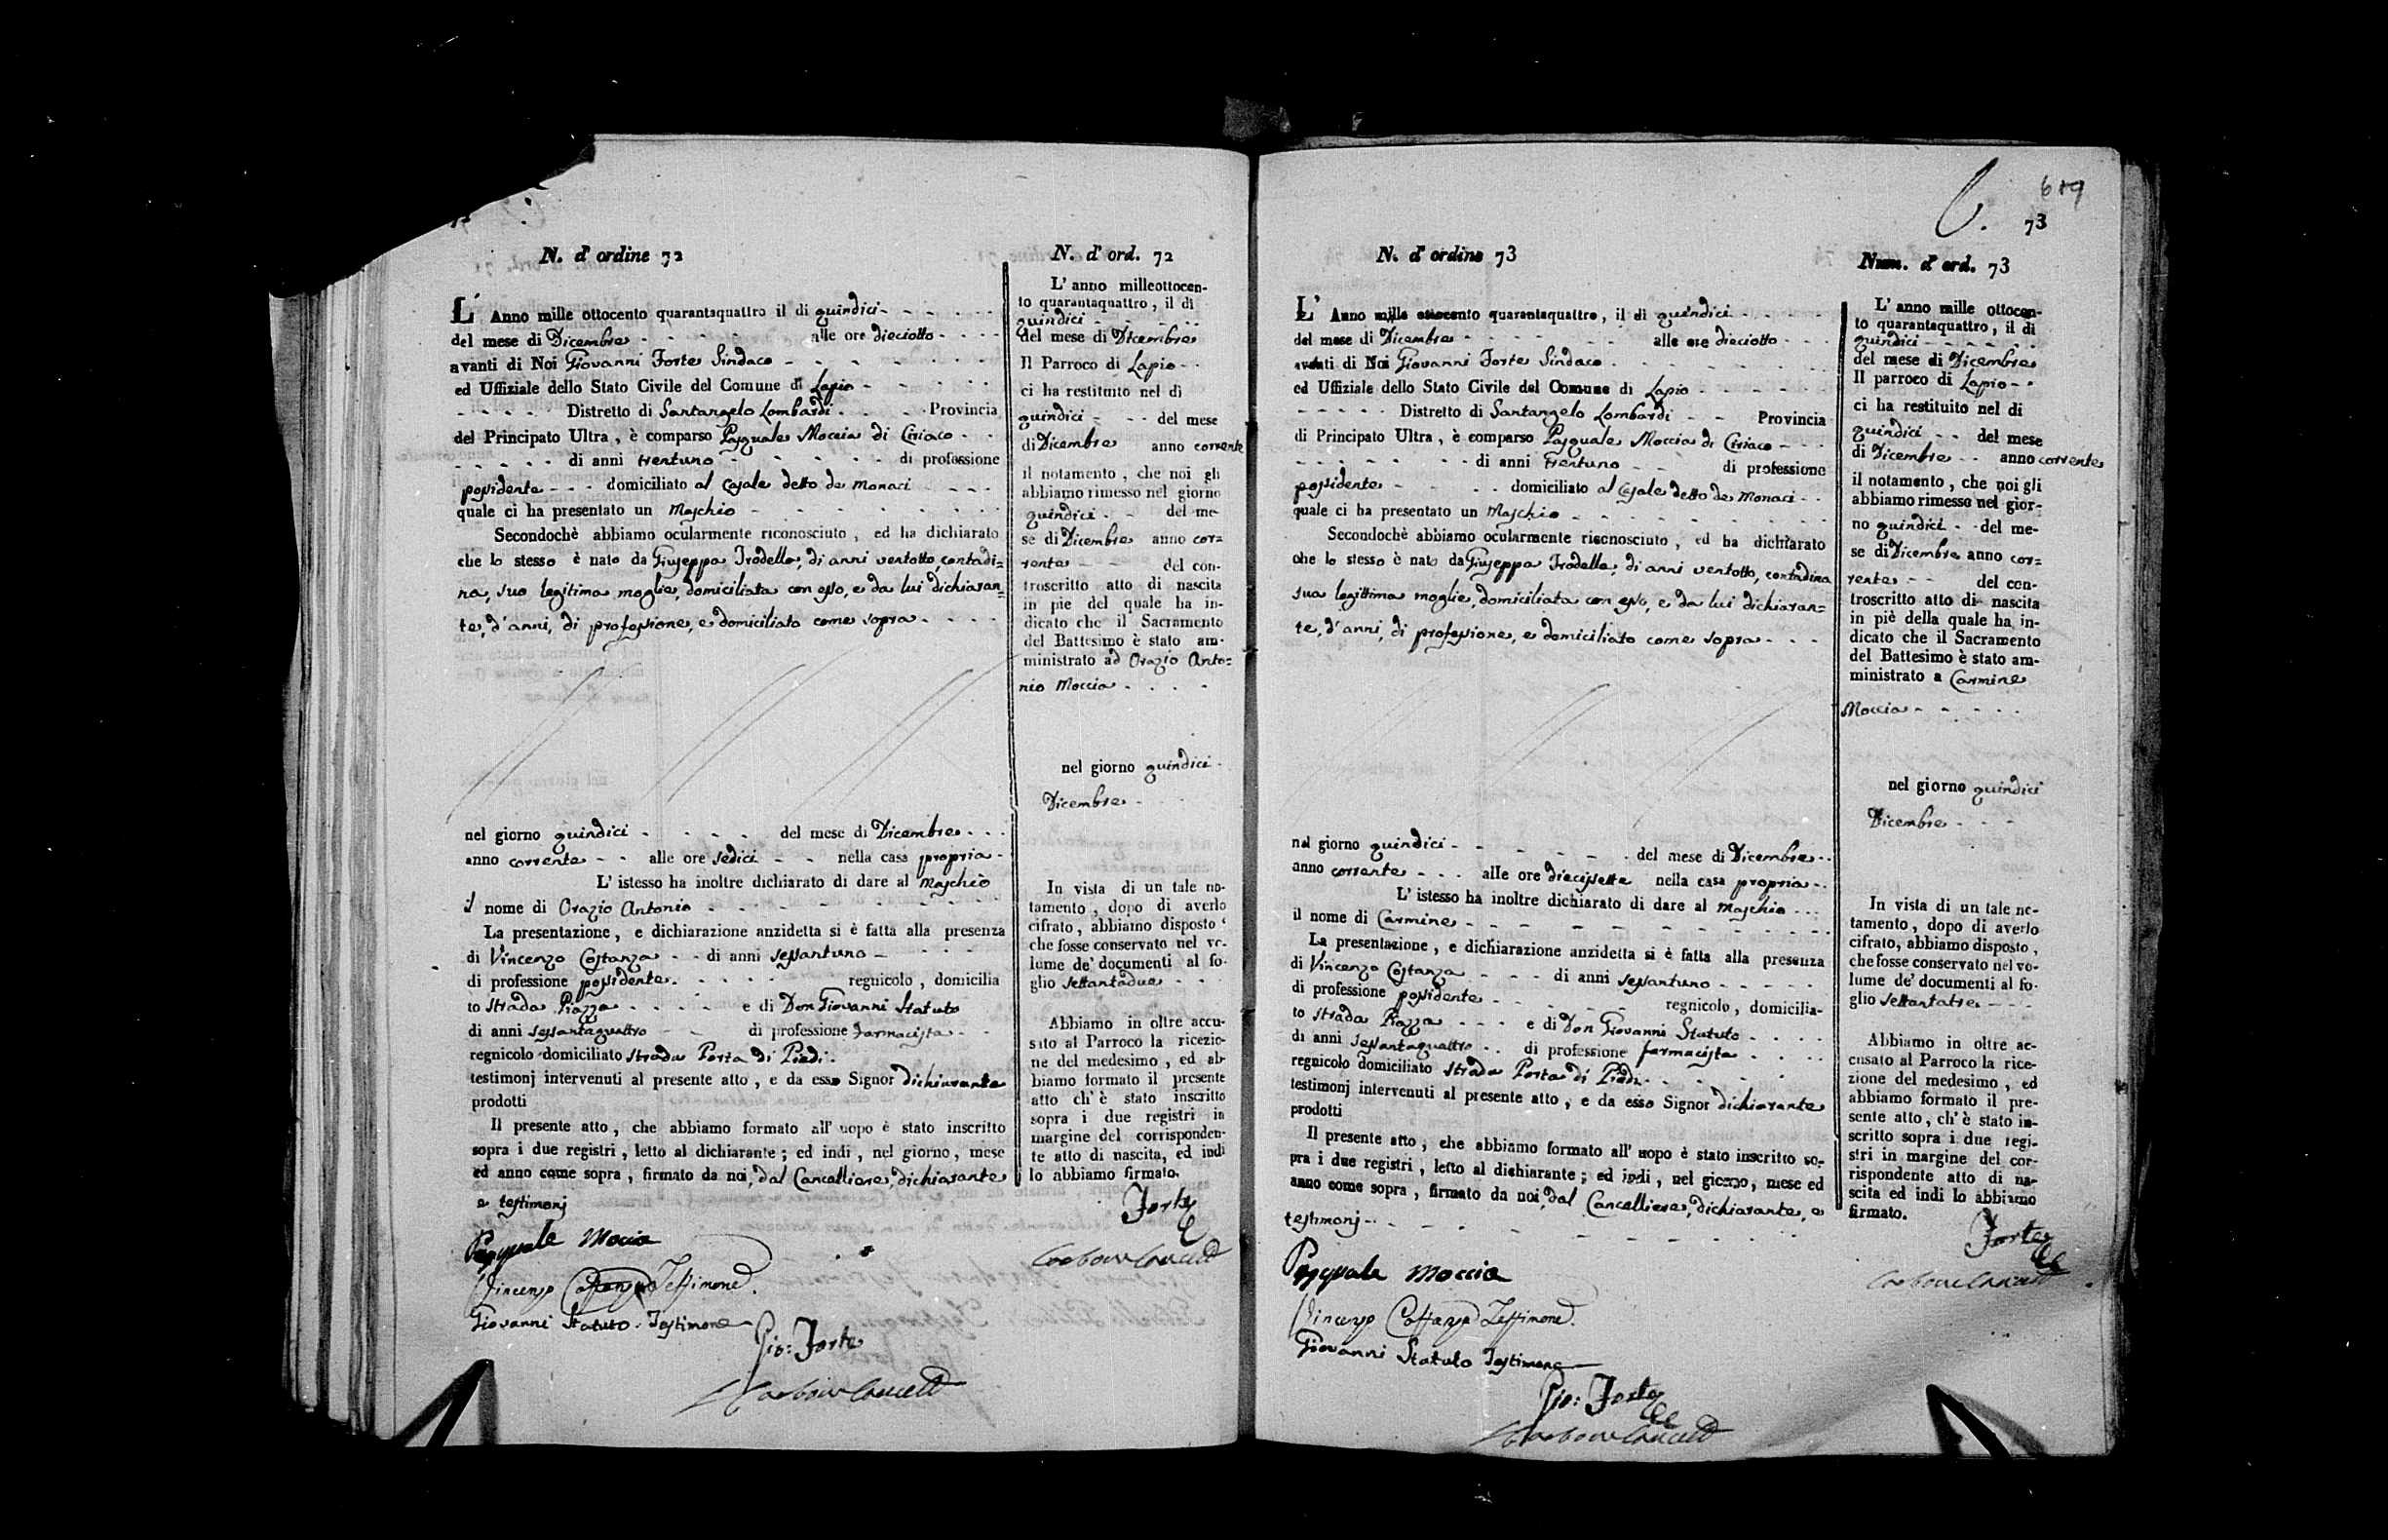 N. d' ordine 72
L' Anno mille ottocento quarantaquattro il di quindici - - - - -
del mese di Dicembre - - - - alle ore dieciotto - - - -
avanti di Noi Giovanni Forte Sindaco - - - - - -
ed Uffiziale dello Stato Civile del Comune di Lapio - - - - -
- - - - - Distretto di Santangelo Lombardi - - - Provincia
del Principato Ultra, è comparso Pasquale Moccia di Ciriaco - -
- - - - - di anni trentuno - - - - - di professione
possidente - - - domiciliato al Casale detto de Monaci - - - -
quale ci ha presentato un Maschio - - - - - - -
Secondochè abbiamo ocularmente riconosciuto, ed ha dichiarato
che lo stesso è nato da Giuseppa Trodella, di anni ventotto, contadi=
na, sua legitima moglie, domiciliata con esso, e da lui dichiaran=
te, d'anni, di professione, e domiciliato come sopra - - - -
nel giorno quindici - - - - del mese di Dicembre - - -
anno corrente - - alle ore sedici - - nella casa propria -
L' istesso ha inoltre dichiarato di dare al Maschio
il nome di Orazio Antonio - - - - - - - -
La presentazione, e dichiarazione anzidetta si è fatta alla presenza
di Vincenzo Costanza - - di anni sessantuno - - - -
di professione possidente - - - - - regnicolo, domicilia
to Strada Piazza - - - - e di Don Giovanni Statuto
di anni sessantaquattro - - di professione Farmacista - -
regnicolo domiciliato Strada Porta di Piedi.
testimonj intervenuti al presente atto, e da esso Signor dichiarante
prodotti
Il presente atto, che abbiamo formato all' uopo è stato inscritto
sopra i due registri, letto al dichiarante; ed indi, nel giorno, mese
ed anno come sopra, firmato da noi, dal Cancelliere, dichiarante
e testimonj
Pasquale Mocia
Vincenzo Costanza Testimone.
Giovanni Statuto Testimone
Gio: Forte
N. d' ord. 72
L' anno milleottocen-
to quarantaquattro, il di
quindici - - - - -
del mese di Dicembre
Il Parroco di Lapio - -
ci ha restituito nel di
quindici - - - del mese
di Dicembre anno corrente
il notamento, che noi gli
abbiamo rimesso nel giorno
quindici - - del me-
se di Dicembre anno cor=
rente - - del con-
troscritto atto di nascita
in pie del quale ha in-
dicato che il Sacramento
del Battesimo è stato am-
ministrato ad Orazio Anto=
nio Moccia - - - -
nel giorno quindici -
Dicembre - - -
In vista di un tale no-
tamento, dopo di averlo
cifrato, abbiamo disposto
che fosse conservato nel vo-
lume de' documenti al fo-
glio settantadue - -
Abbiamo in oltre accu-
sato al Parroco la ricezio-
ne del medesimo, ed ab-
biamo formato il presente
atto ch' è stato inscritto
sopra i due registri in
margine del corrisponden-
te atto di nascita, ed indi
lo abbiamo firmato.
Forte
619
73
N. d' ordine 73
L' Anno mille ottocento quarantaquattro, il di quindici - - - -
del mese di Dicembre - - - - - - alle ore dieciotto - - -
avanti di Noi Giovanni Forte Sindaco - - - - - -
ed Uffiziale dello Stato Civile del Comune di Lapio - - - - -
- - - - - Distretto di Santangelo Lombardi - - Provincia
di Principato Ultra, è comparso Pasquale Moccia di Ciriaco - - -
- - - - - - - di anni trentuno - - di professione
possidente - - - - domiciliato al Casale detto de Monaci - -
quale ci ha presentato un Maschio - - - - - - -
Secondochè abbiamo ocularmente riconosciuto, ed ha dichiarato
che lo stesso è nato da Giuseppa Trodella, di anni ventotto, contadina
sua legittima moglie, domiciliata con esso, e da lui dichiaran=
te, d'anni, di professione, e domiciliato come sopra - - -
nel giorno quindici - - - - - - - del mese di Dicembre - -
anno corrente - - - alle ore diecissette nella casa propria - -
L' istesso ha inoltre dichiarato di dare al Maschio - - -
il nome di Carmine - - - - - - - - - -
La presentazione, e dichiarazione anzidetta si è fatta alla presenza
di Vincenzo Costanza - - - - di anni sessantuno - - - - -
di professione possidente - - - - - regnicolo, domicilia-
to Strada Piazza - - - e di Don Giovanni Statuto - - - -
di anni sessantaquattro - - di professione farmacista - - - -
regnicolo domiciliato Strada Porta di Piedi - - - - -
testimonj intervenuti al presente atto, e da esso Signor dichiarante
prodotti
Il presente atto, che abbiamo formato all' uopo è stato inscritto so-
pra i due registri, letto al dichiarante; ed indi, nel giorno, mese ed
anno come sopra, firmato da noi, dal Cancelliere, dichiarante, e
testimonj - - - - - - - - - -
Pasquale Moccia
Vincenzo Costanza Testimone.
Giovanni Statuto Testimone
Gio: Forte
Num. d' ord. 73
L' anno mille ottocen-
to quarantaquattro, il di
quindici - - - - - -
del mese di Dicembre
Il parroco di Lapio - -
ci ha restituito nel di
quindici - - del mese
di Dicembre - - anno corrente
il notamento, che noi gli
abbiamo rimesso nel gior-
no quindici - - del me-
se di Dicembre anno cor=
rente - - del con-
troscritto atto di nascita
in piè della quale ha in-
dicato che il Sacramento
del Battesimo è stato am-
ministrato a Carmine
Moccia - - - - -
nel giorno quindici
Dicembre - - -
In vista di un tale no-
tamento, dopo di averlo
cifrato, abbiamo disposto,
che fosse conservato nel vo-
lume de' documenti al fo-
glio settantatre - - -
Abbiamo in oltre ac-
cusato al Parroco la rice-
zione del medesimo, ed
abbiamo formato il pre-
sente atto, ch' è stato in-
scritto sopra i due regi-
stri in margine del cor-
rispondente atto di na-
scita ed indi lo abbiamo
firmato.
Forte